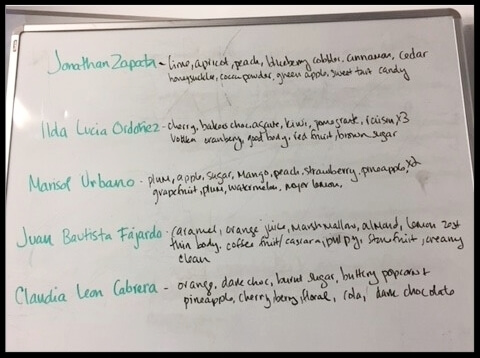 Jonathan Zapata - lime, apricot, peach, blueberry cobbler, cinnamon, cedar
honeysuckle, cocoa powder, green apple, sweet tart candy
Ilda Lucia Ordoñez - cherry, bakers choc, agave, kiwi, pomegranate, raisin x3
vodka cranberry, good body, red fruit, brown sugar
Marisol Urbano - plum, apple, sugar, mango, peach, strawberry, pineapple, x2
grapefruit, plum, watermelon, meyer lemon,
Juan Bautista Fajardo - caramel, orange juice, marshmallow, almond, lemon zest
thin body, coffee fruit/cascara, pulpy, stonefruit, creamy
clean
Claudia Leon Cabrera - orange, dark choc, burnt sugar, buttery popcorn
pineapple, cherry berry, floral, cola, dark chocolate